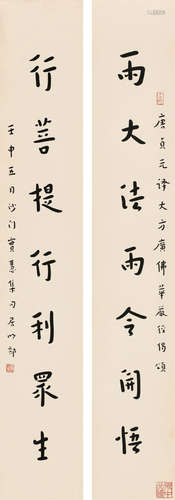 唐貞元譯大方廣佛華嚴經偈頌
雨大法雨令開悟
行菩提行利眾生
壬申五月沙门寶慧集句居